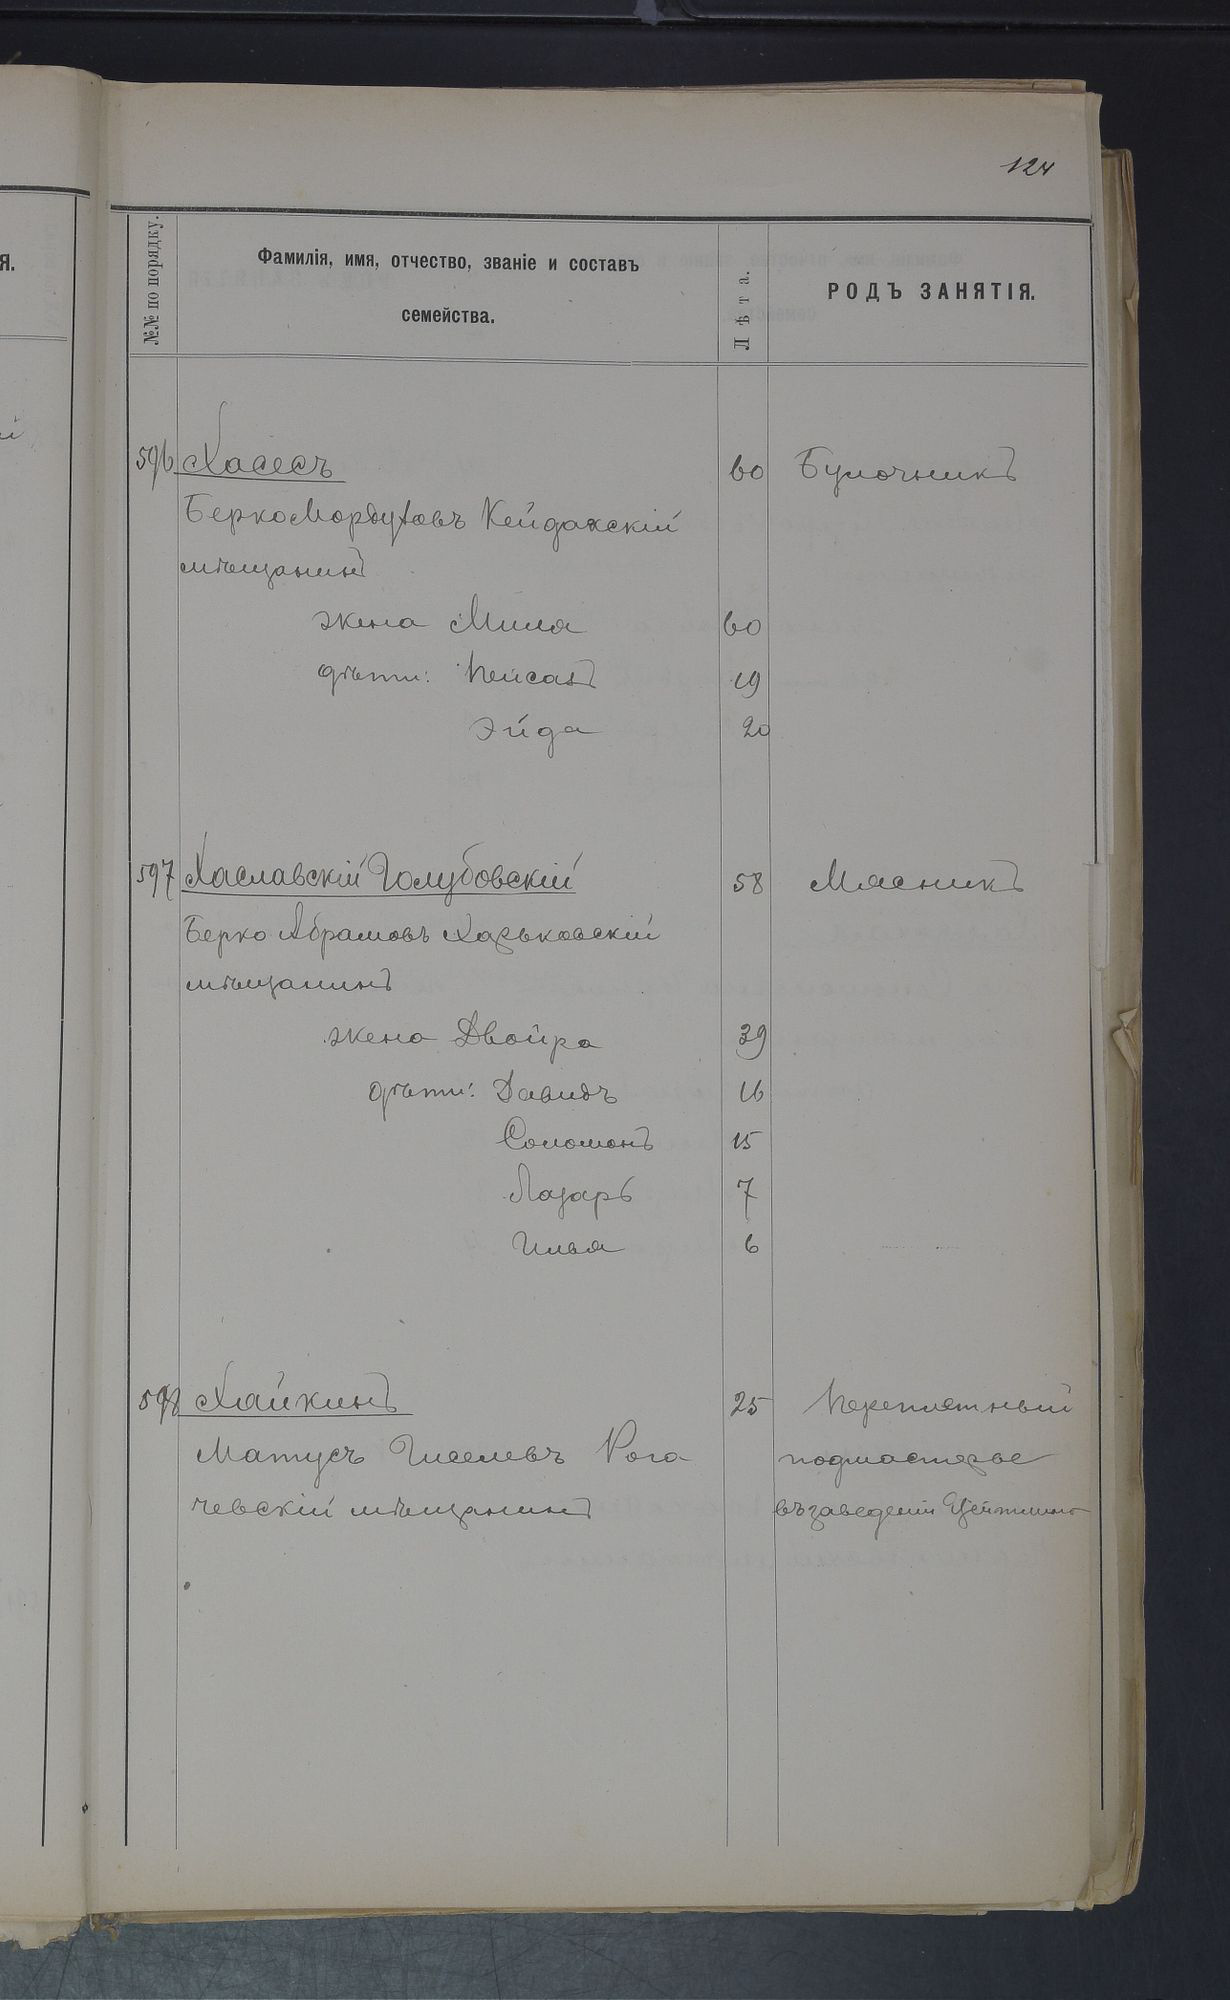 124
№№ по порядку.
Фамилія, имя, отчество, званіе и составъ
семейства.
Лѣта.
РОДЪ ЗАНЯТІЯ.
Я.
596 Хасесъ 60 Булочникъ
Берко Мордуховъ Кейданскій
мѣщанинъ
жена Мина 60
дѣти: Пейсахъ 19
Эйда 20
597 Хаславскій Голубовскій 58 Мясникъ
Берко Абрамовъ Харьковскій
мѣщанинъ
жена Двойра 39
дѣти: Давидъ 16
Соломонъ 15
Лазарь 7
Илья 6
598 Хайкинъ 25 Переплетный
Матусъ Гиселевъ Рога подмастерье
чевскій мѣщанинъ въ заведеніи Цейтлина